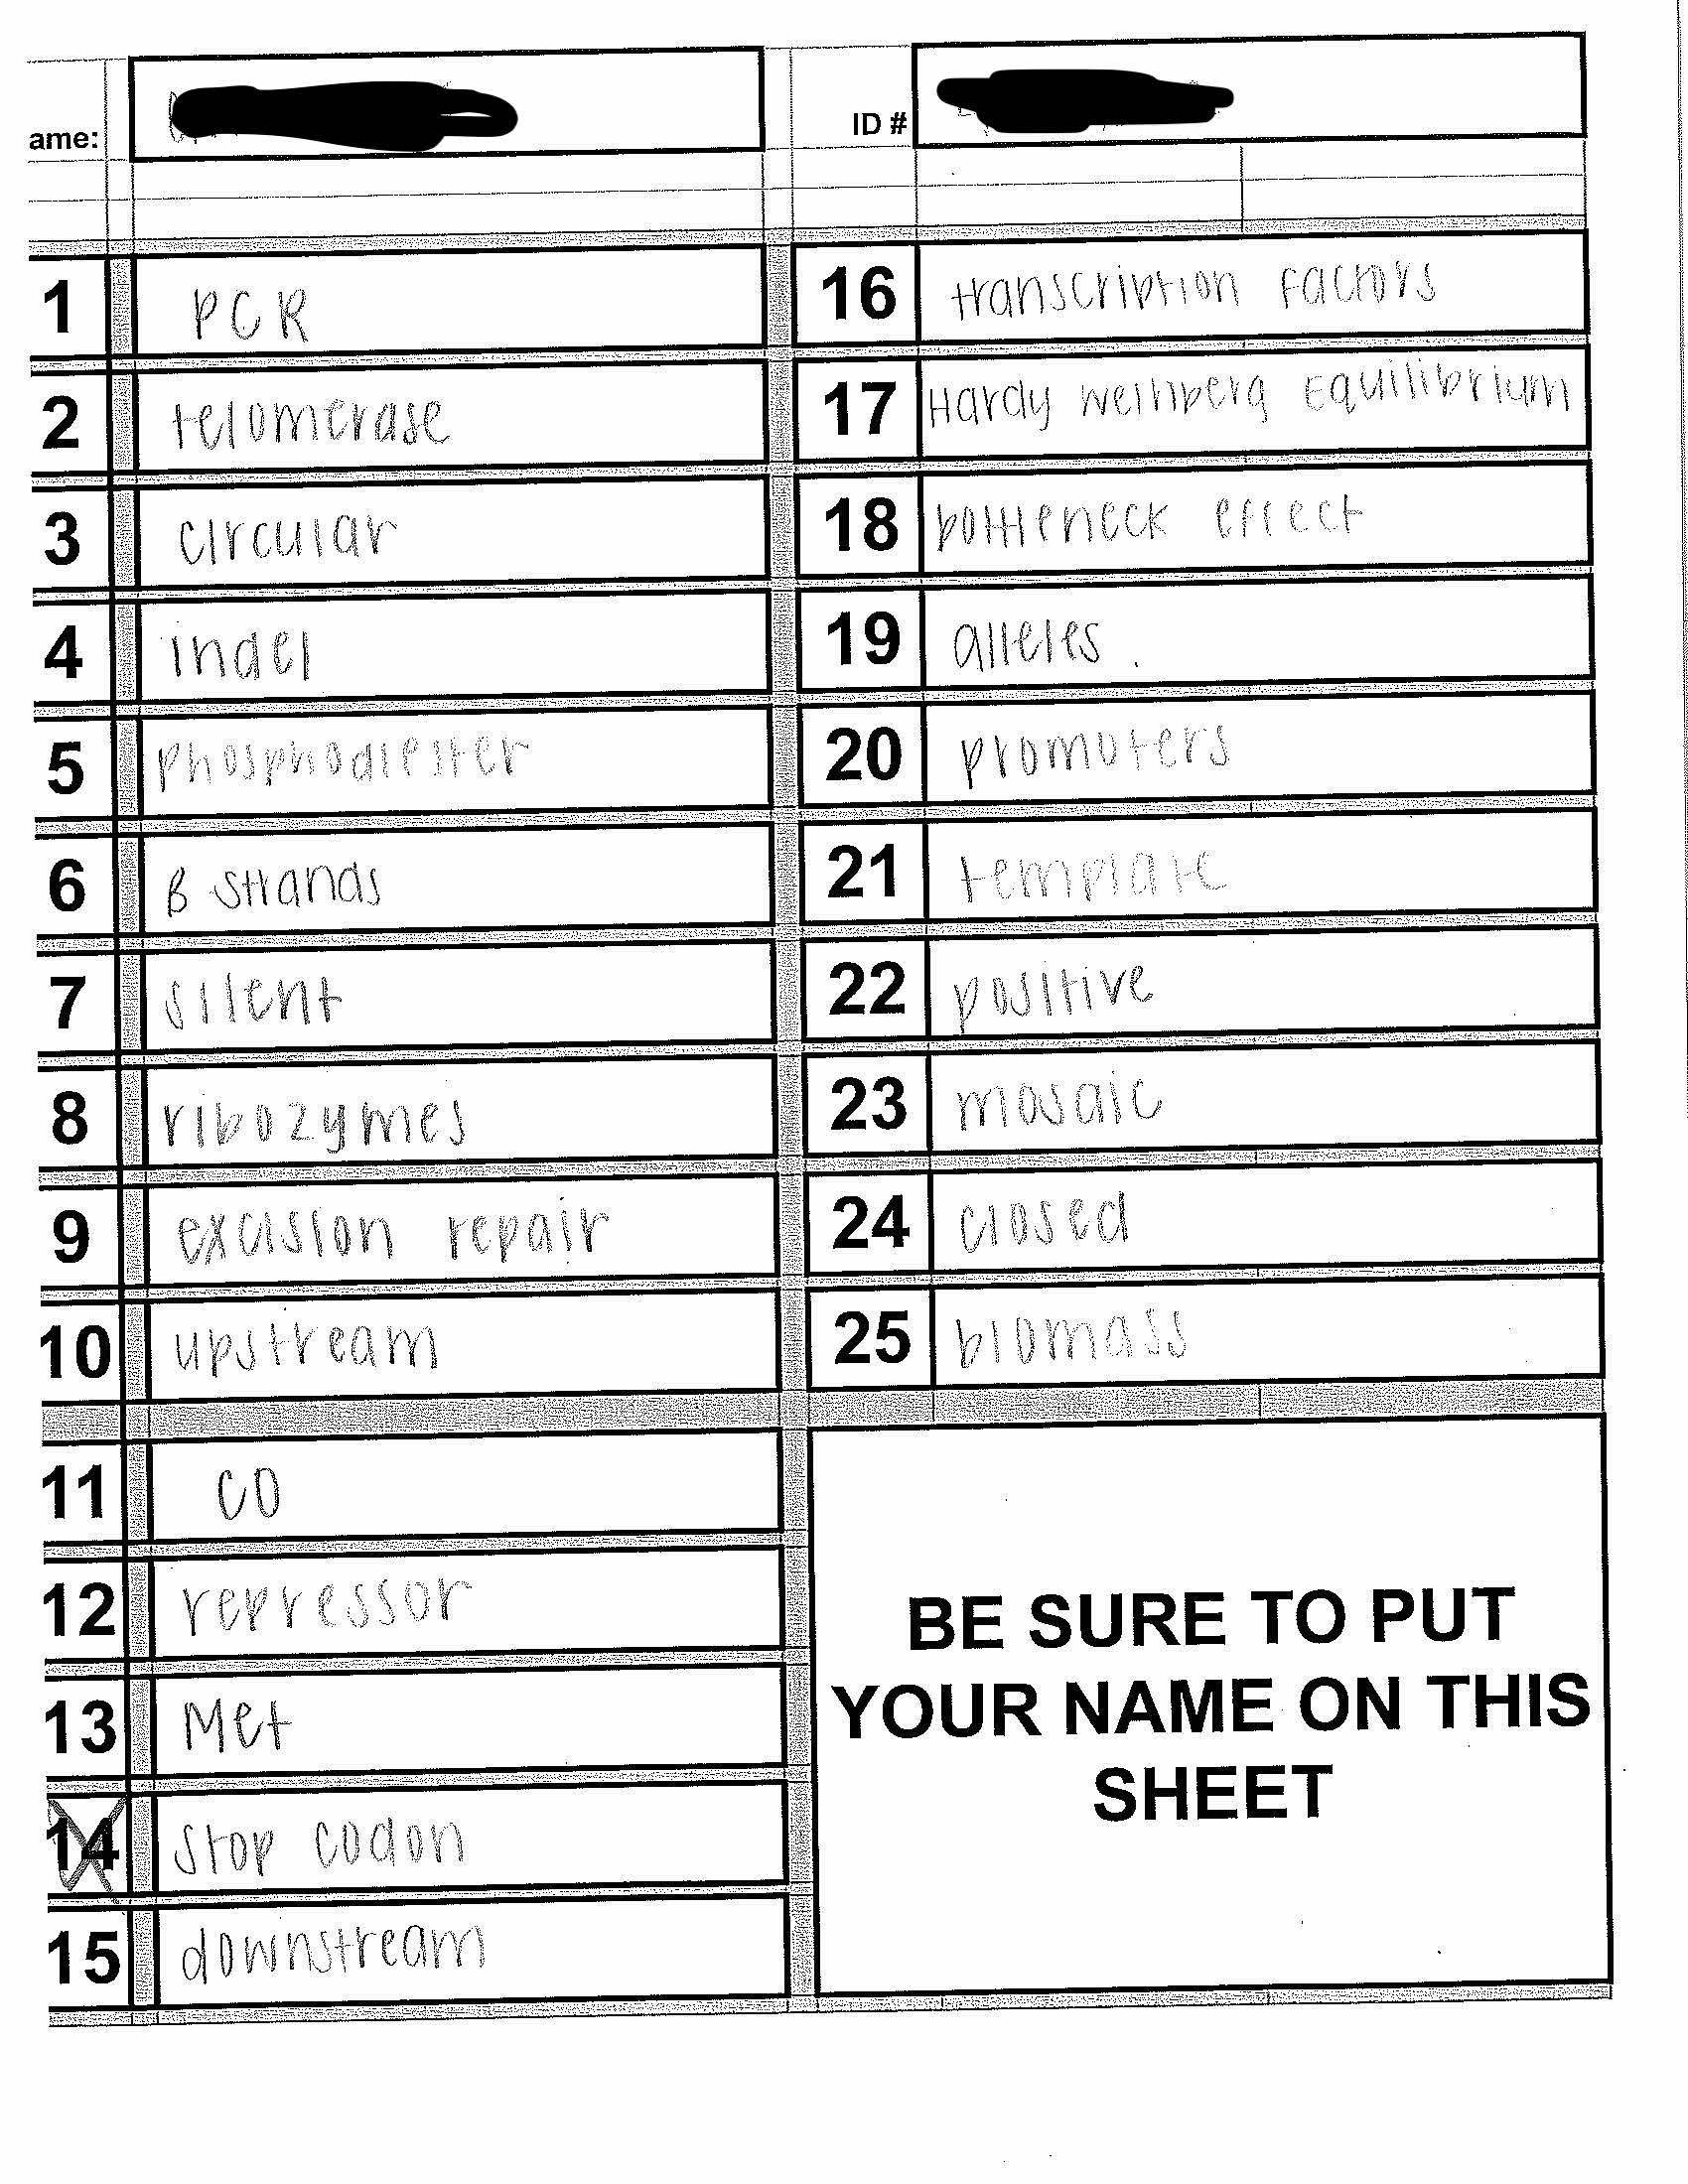 ame:
ID #
1 PCR
2 telomerase
3 circular
4 indel
5 phosphodiester
6 B strands
7 silent
8 ribozymes
9 excision repair
10 upstream
11 CO
12 repressor
13 Met
14 stop codon
15 downstream
16 transcription factors
17 Hardy Weinberg Equilibrium
18 bottleneck effect
19 alleles
20 promoters
21 template
22 positive
23 mosaic
24 closed
25 biomass
BE SURE TO PUT
YOUR NAME ON THIS
SHEET